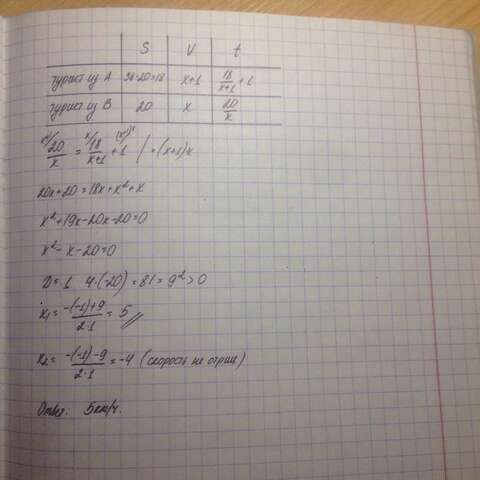 S V t
турист из A 38-20=18 x+1 18/(x+1) + 1
турист из B 20 x 20/x
20/x = 18/(x+1) + 1 | · (x+1)x
20x+20=18x+x²+x
x²+19x-20x-20=0
x²-x-20=0
D= 1 4·(-20) = 81 = 9² > 0
x₁= (-(-1)+9)/(2·1) = 5
x₂= (-(-1)-9)/(2·1) = -4 (скорость не отриц)
Ответ: 5км/ч.